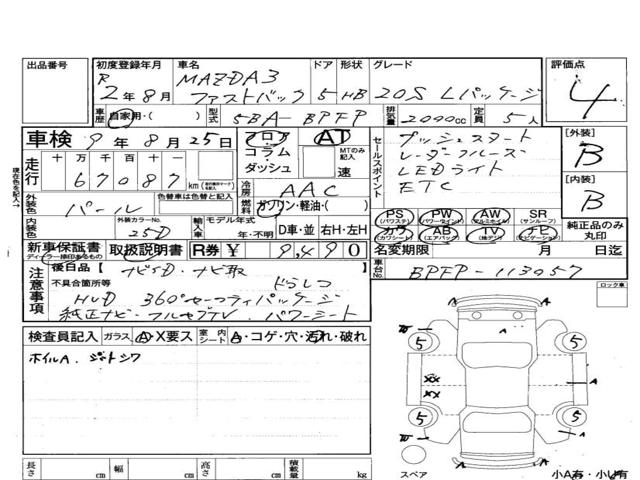 出品番号 初度登録年月 車名 ドア 形状 グレード 評価点
R 2年8月 MAZDA3 ファストバック 5 HB 20S Lパッケージ 4
車歴 自家用・( ) 型式 5BA-BPFP 排気量 2000cc 定員 5人
車検 9年 8月 25日 フロア コラム・ダッシュ AT MTのみ記入 速
セールスポイント プッシュスタート
レーダークルーズ
LEDライト
ETC
[外装] B
[内装] B
走行 十万千百十一
67087 km
冷房 AAC
外装色 パール 色替車は元色と記入 色替 燃料 ガソリン・軽油・( )
内装色 外装カラーNo. 25D 輸入車 モデル年式 年・不明 D車・並 右H・左H
PS (パワステ) PW (パワーウインド) AW (アルミホイル) SR (サンルーフ)
カワ (カワシート) AB (エアバッグ) TV (地デジ) ナビ (ナビゲーション)
純正品のみ丸印
新車保証書 ディーラー捺印あるもの 取扱説明書 R券 ¥ 9,490
名変期限 月 日迄
現在色を記入→
注意事項 後日品【 ナビSD・ナビ取
不具合箇所等 ドラレコ
HUD 360°セーフティパッケージ
純正ナビ・フルセグTV パワーシート
車台No. BPFP-113057
ロック車
検査員記入 ガラス A・X要ス 室内シート A・コゲ・穴・汚れ・破れ
ホイルA.
5 5
A
XX
XX
A A
5 5
A
スペア
小A有・小U有
長さ cm 幅 cm 高さ cm 積載量 kg